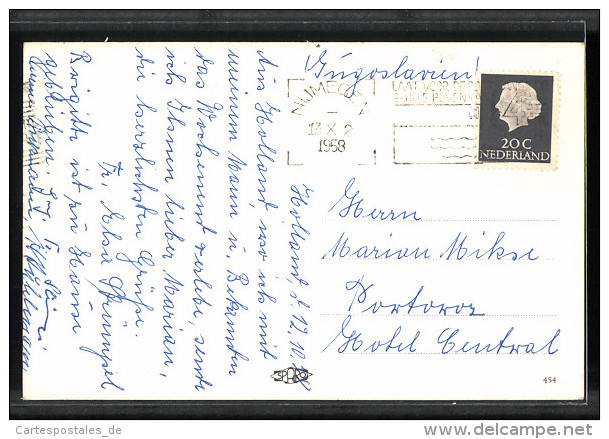 (Jugoslavien!)
NIJMEGEN
13.X.2
1958
20 C
NEDERLAND
Holland, d. 12.10.58
Aus Holland, wo ich mit
meinem Mann u. Bekannten
das Wochenend verlebe, sende
ich Ihnen lieber Marian,
die herzlichsten Grüße.
Fr. Elsa
Brigitte ist zu Hause
geblieben.
Herrn
Marion Mikse
Portoroz
Hotel Central
454
Cartespostales_de
www.delcampe.net